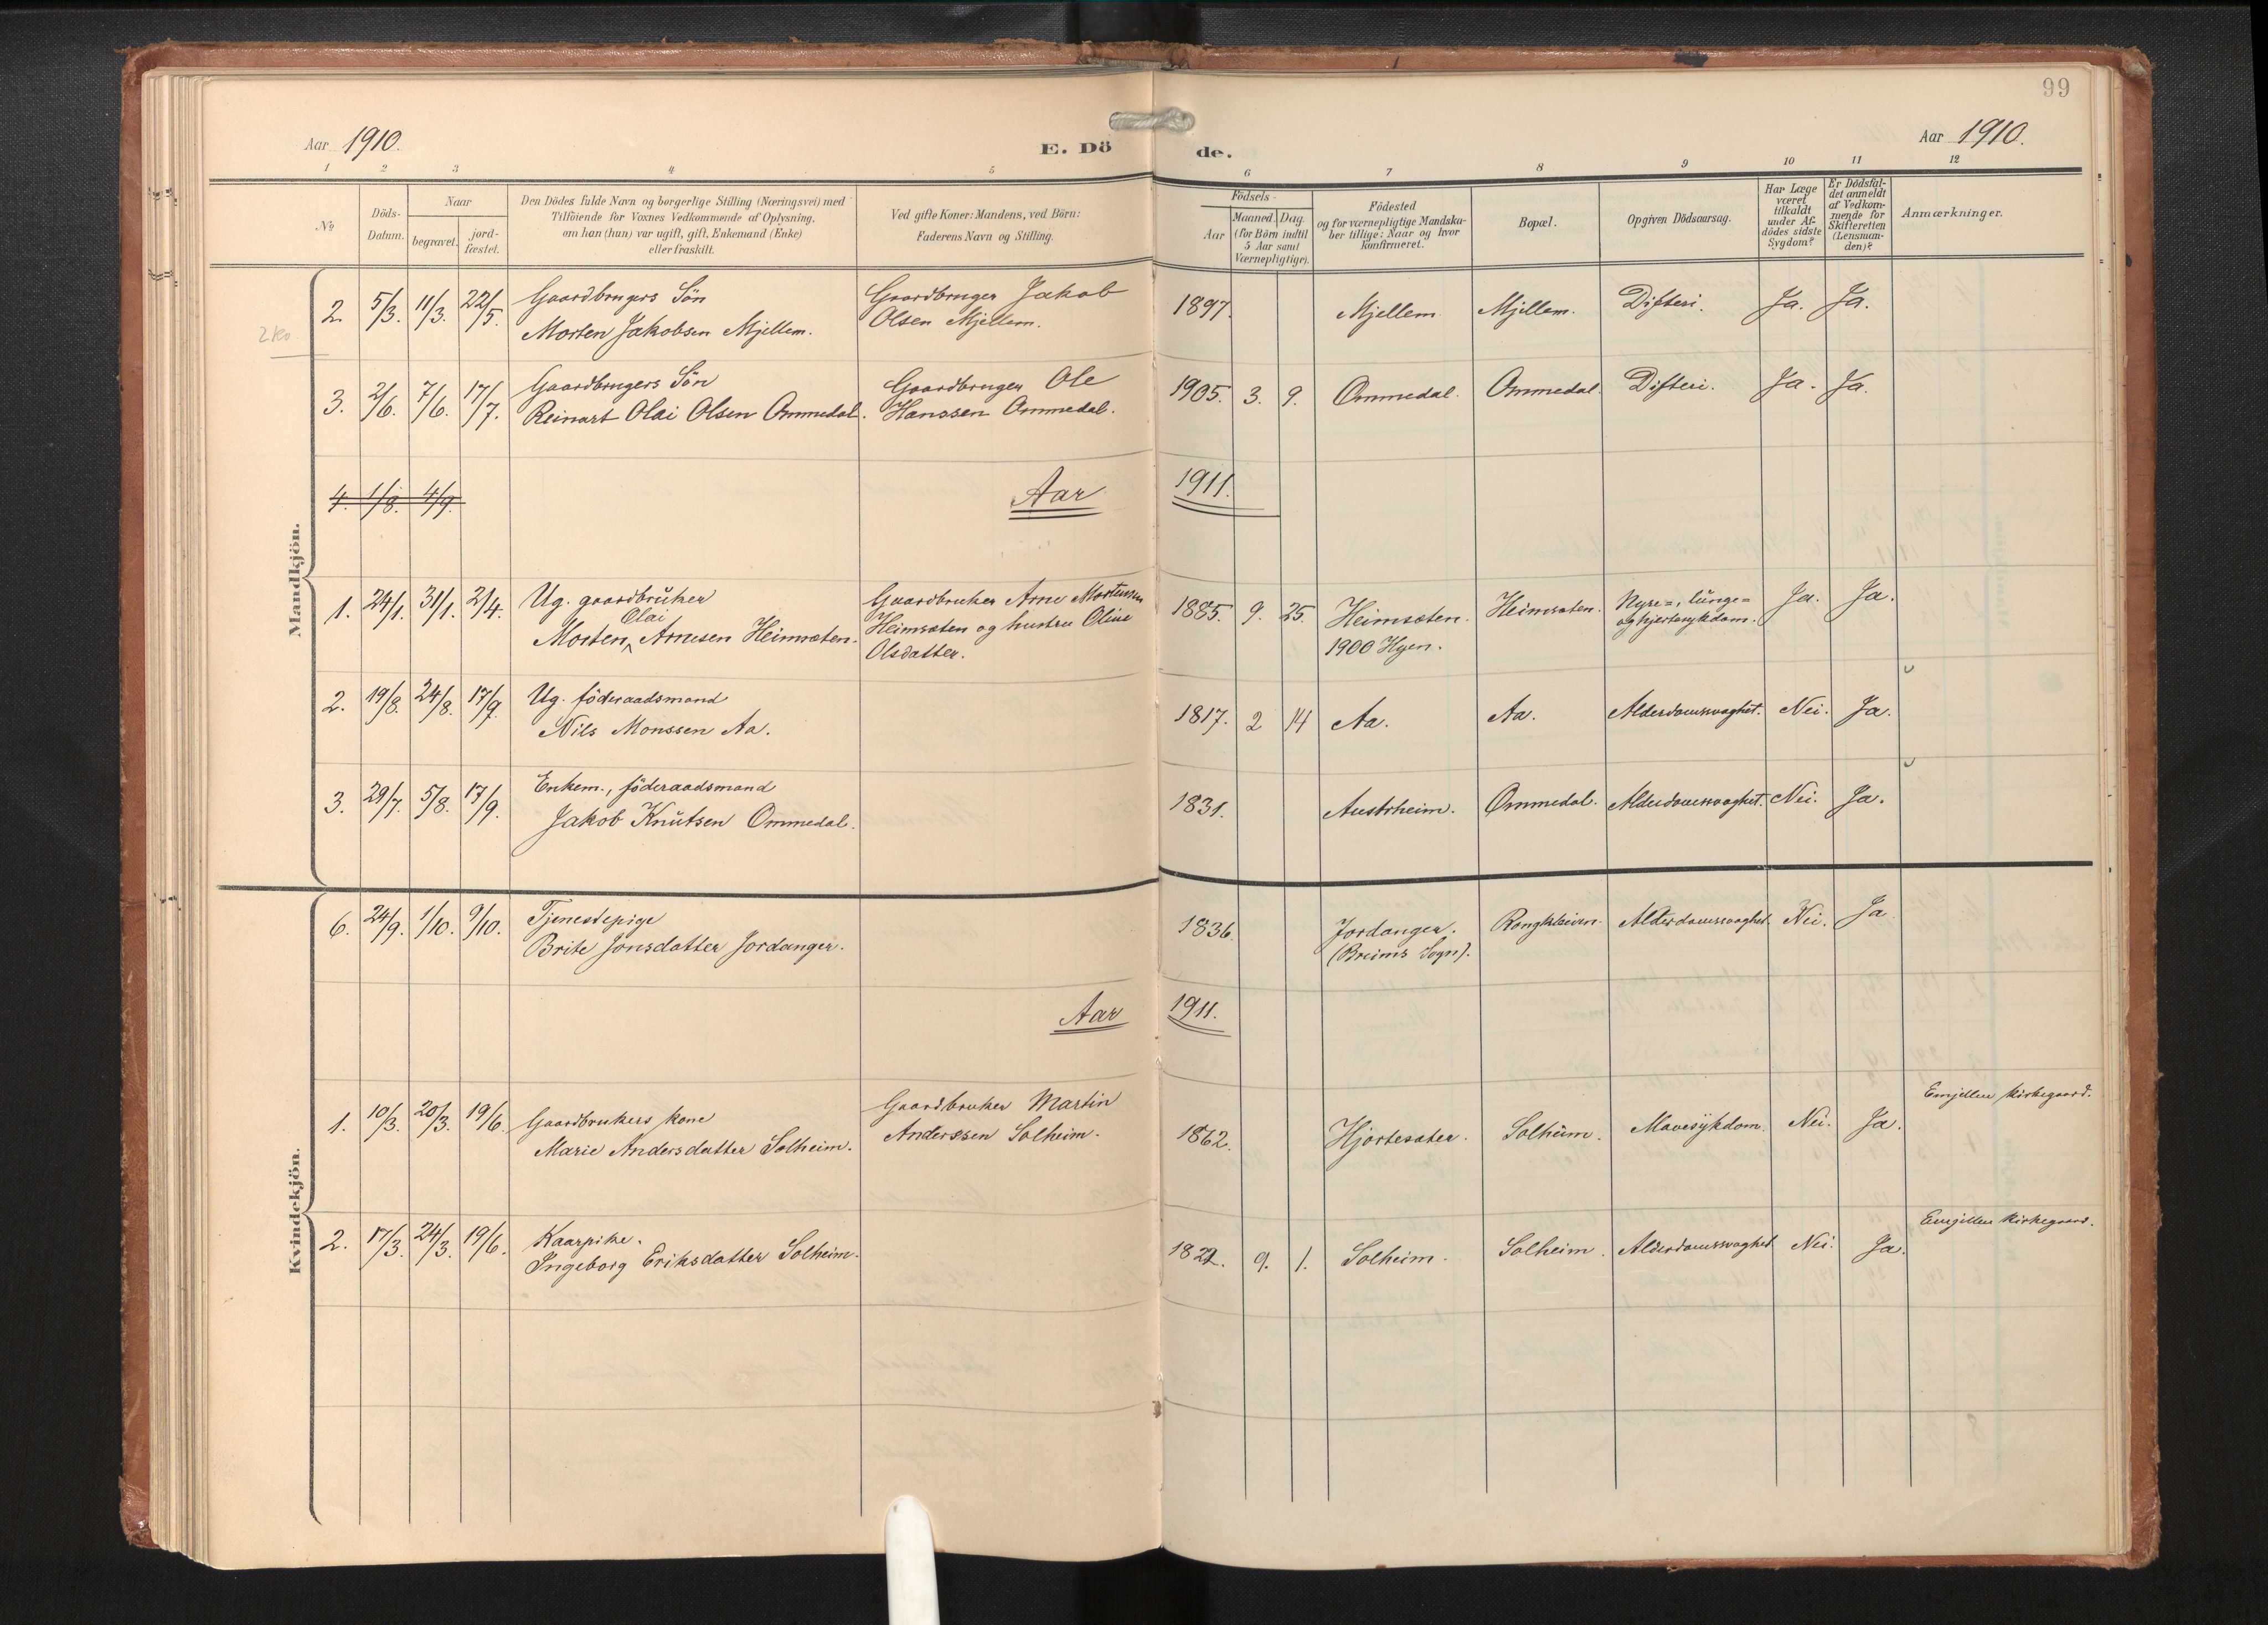 99
Aar 1910.
E. Dö
de.
Aar 1910.
1 2 3 4 5 6 7 8 9 10 11 12
No
Döds-
Datum.
Naar
begravet.
jord-
fæstet.
Den Dödes fulde Navn og borgerlige Stilling (Næringsvei) med
Tilföiende for Voxnes Vedkommende af Oplysning,
om han (hun) var ugift, gift, Enkemand (Enke)
eller fraskilt.
Ved gifte Koner: Mandens, ved Börn:
Faderens Navn og Stilling.
Födsels-
Aar
Maaned. Dag.
(for Börn indtil
5 Aar samt
Værnepligtige).
Födested
og for værnepligtige Mandska-
ber tillige: Naar og hvor
konfirmeret.
Bopæl.
Opgiven Dödsaarsag.
Har Læge
været
tilkaldt
under Af-
dödes sidste
Sygdom?
Er Dödsfal-
det anmeldt
af Vedkom-
mende for
Skifteretten
(Lensman-
den)?
Anmærkninger.
Mandkjön.
2. 5/3. 11/3. 22/5. Gaardbrugers Sön
Morten Jakobsen Mjellem.
Gaardbruger Jakob
Olsen Mjellem.
1897. Mjellem. Mjellem. Difteri. Ja. Ja.
3. 2/6. 7/6. 17/7. Gaardbrugers Sön
Reinart Olai Olsen Ommedal.
Gaardbruger Ole
Hanssen Ommedal.
1905. 3. 9. Ommedal. Ommedal. Difteri. Ja. Ja.
4. 1/8. 4/9.
Aar 1911.
1. 24/1. 31/1. 2/4. Ug. gaardbruker
Olai
Morten Arnesen Heimsæten.
Gaardbruker Arne Mortensen
Heimsæten og hustru Oline
Olsdatter.
1885. 9. 25. Heimsæten.
1900 Hyen.
Heimsæten. Nyre=, lunge=
og hjertesykdom. Ja. Ja.
2. 19/8. 24/8. 17/9. Ug. föderaadsmand
Nils Monssen Aa.
1817. 2 14 Aa. Aa. Alderdomssvaghet. Nei. Ja.
3. 29/7. 5/8. 17/9. Enkem., föderaadsmand
Jakob Knutsen Ommedal.
1831. Austrheim. Ommedal. Alderdomssvaghet. Nei. Ja.
Kvindekjön.
6. 24/9. 1/10. 9/10. Tjenestepige
Brite Jonsdatter Jordanger.
1836. Jordanger.
(Breims Sogn).
Rongkleiven. Alderdomssvaghet. Nei. Ja
Aar 1911.
1. 10/3. 20/3. 19/6. Gaardbrukers kone
Marie Andersdatter Solheim.
Gaardbruker Martin
Anderssen Solheim.
1862. Hjortesæter. Solheim. Mavesykdom. Nei. Ja.
Emjellen kirkegaard.
2. 17/3. 24/3. 19/6. Kaarpike.
Ingeborg Eriksdatter Solheim.
1822. 9. 1. Solheim. Solheim. Alderdomssvaghet Nei. Ja.
Emjellen kirkegaard.